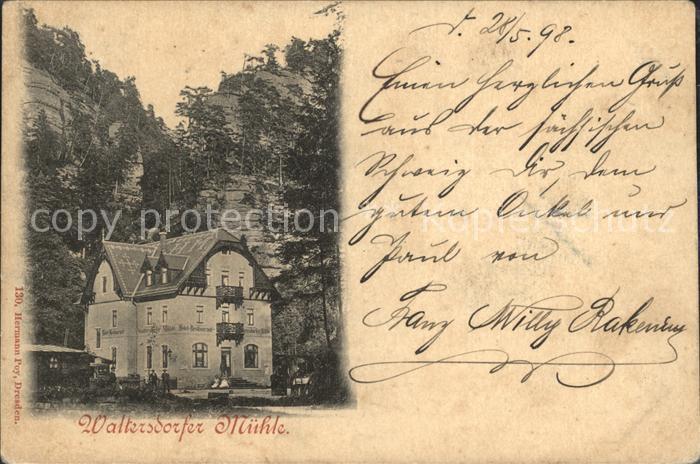 d. 28/5. 98.
Einen herzlichen Gruß
aus der sächsischen
Schweiz Dir, dem
gutem Onkel und
Paul von
Franz Willy
copy protection Kopierschutz
130, Hermann Poy, Dresden.
Waltersdorfer Mühle.